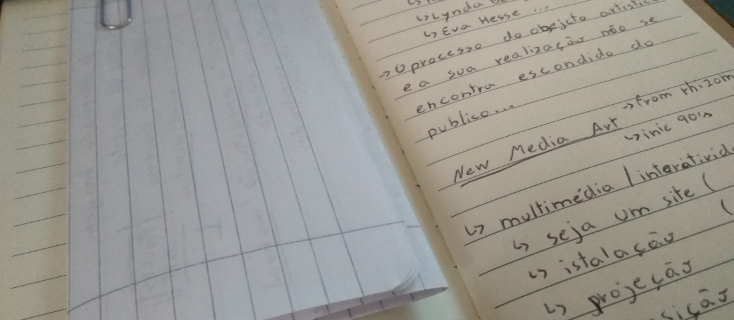 ↳ Lynda
↳ Eva Hesse ...
→ O processo do objeto artistico
e a sua realização não se
encontra escondido do
publico...
New Media Art → from rhizom
↳ inic 90's
↳ multimédia / interativid
↳ seja um site (
↳ istalação (
↳ projeção